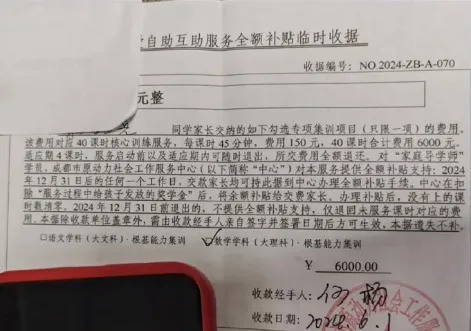 自助互助服务全额补贴临时收据
收据编号：NO.2024-ZB-A-070
元整
同学家长交纳的如下勾选专项集训项目（只限一项）的费用，
该费用对应40课时核心训练服务，每课时45分钟，费用150元，40课时合计费用6000元。
适应期4课时，服务启动前以及适应期内可随时退出，所交费用全额退还。对“家庭导学师”
学员，成都市原动力社会工作服务中心（以下简称“中心”）对本服务提供全额补贴支持：2024
年12月31日后的任何一个工作日，交款家长均可持此据到中心办理全额补贴手续。中心在扣
除“服务过程中给孩子发放的奖学金”后，将余额补贴给交款家长。办理补贴后，没有上的课
时数清零。2024年12月31日前退出的，不提供全额补贴支持，仅退回未服务课时对应的费
用。本据除收款单位盖章外，需由收款经手人亲自签字并签署日期后方可生效。本据遗失不补。
□语文学科（大文科）·根基能力集训 ☑数学学科（大理科）·根基能力集训
￥ 6000.00
收款经手人：何杨
收款日期：2024.6.1